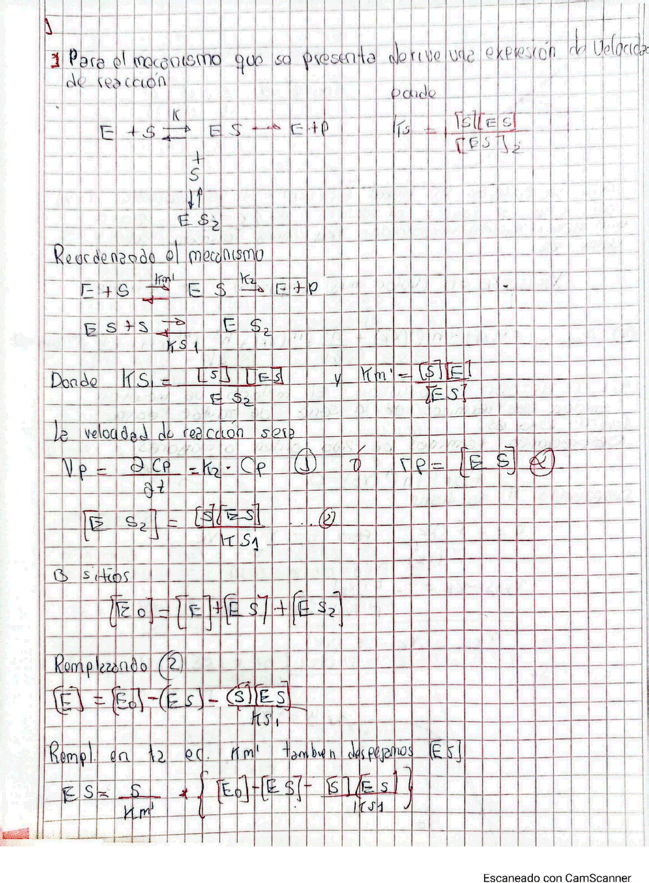 1 Para el mecanismo que se presenta derive una expresión de Velocidad
de reacción
Donde
E + S ⇌ ES → E+P
K
Ks = [S][ES] / [ES]2
+
S
↓↑
ES2
Reordenando el mecanismo
E + S ⇌ ES → E+P
Km' K2
ES + S ⇌ ES2
KS1
Donde KS1 = [S] [ES] / ES2 y Km' = [S][E] / [ES]
la velocidad de reacción sera
Vp = ∂Cp / ∂t = K2 · Cp ① ó rp = [ES]
[ES2] = [S][ES] / KS1 ... ②
B sitios
[E0] = [E]+[ES]+[ES2]
Remplazando ②
[E] = [E0]-(ES)- (S)[ES] / KS1
Rempl en la ec. Km' tambien despejamos [ES]
ES = S / Km' * { [E0]-[ES]- [S][ES] / KS1 }
Escaneado con CamScanner